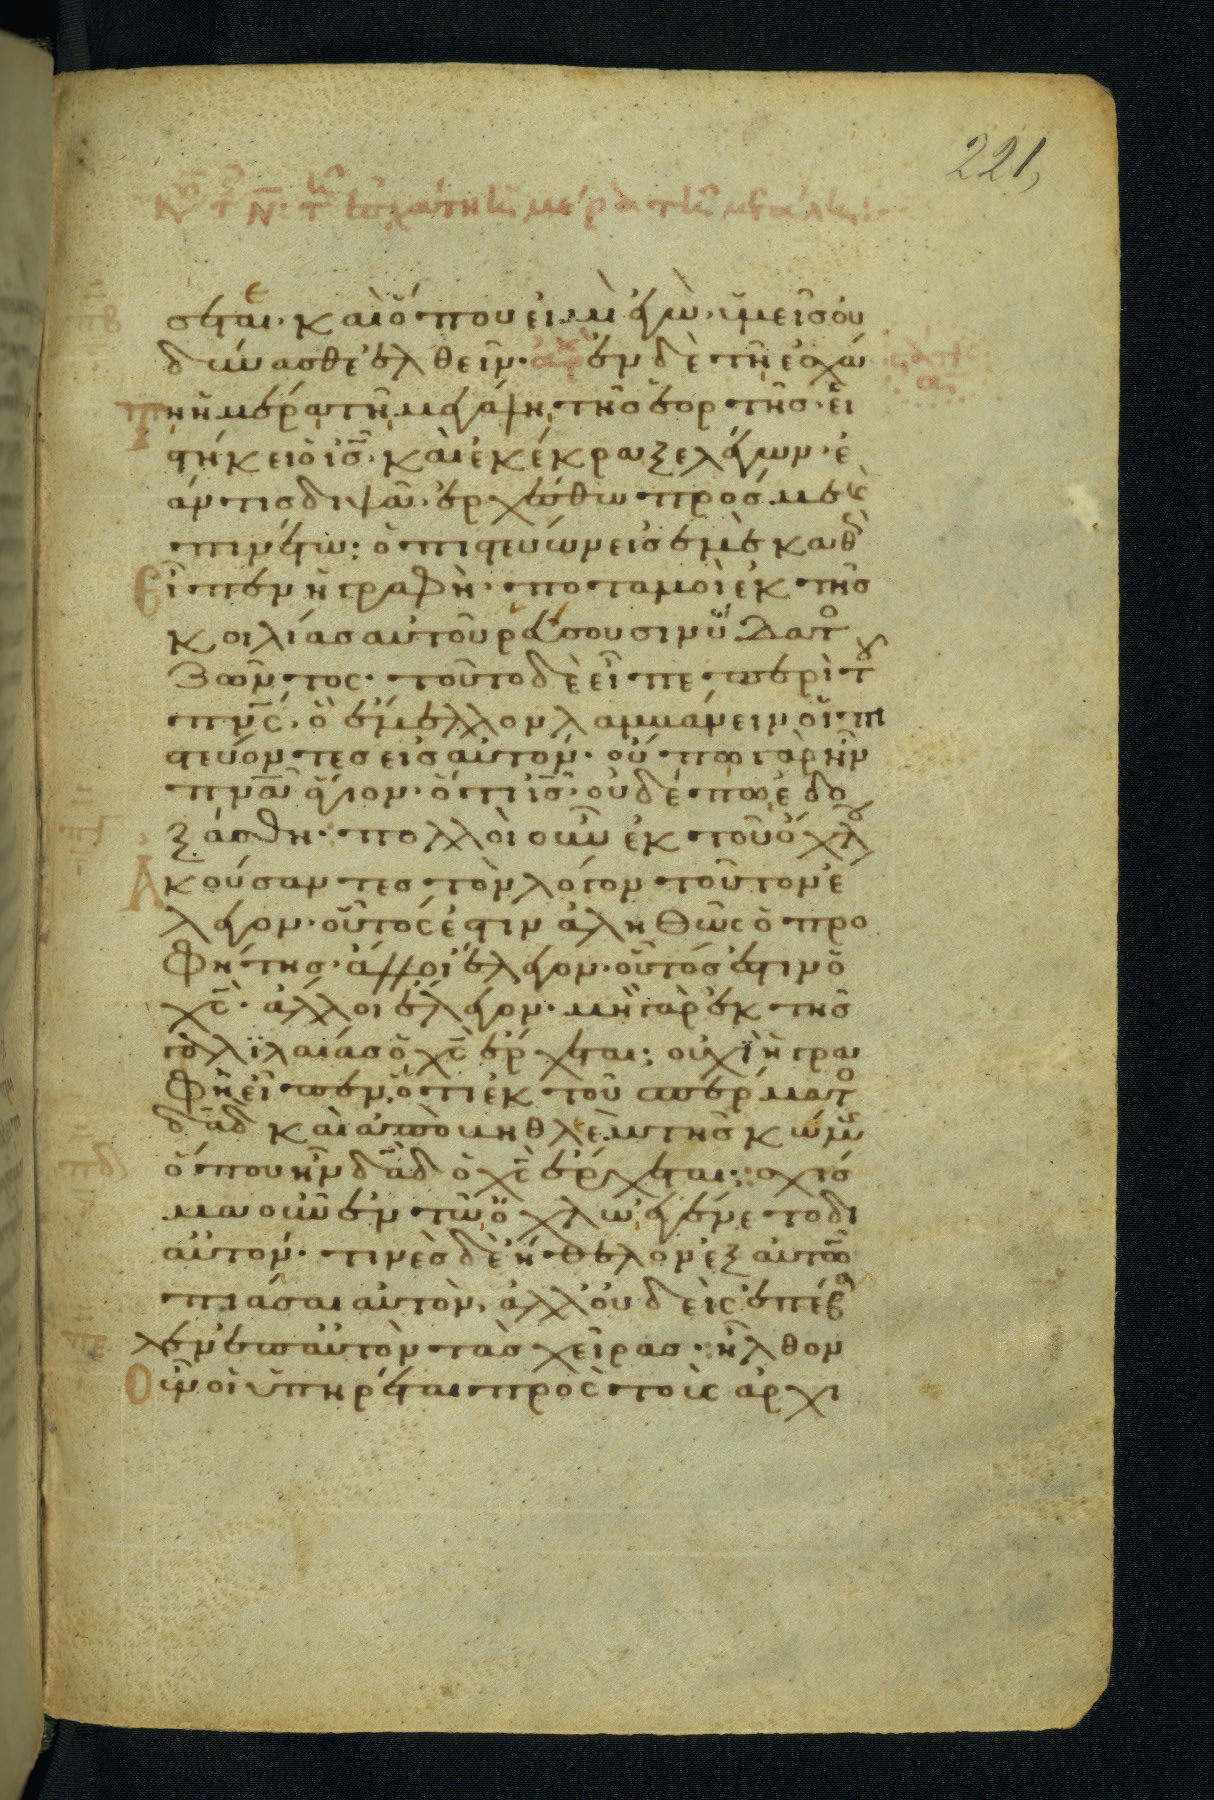 221,
τῇ ἐσχάτῃ ἡμέρᾳ τῇ μεγάλῃ
σεται· καὶ ὅπου εἰμὶ ἐγὼ· ὑμεῖς οὐ
δύνασθε ἐλθεῖν· ἀρχ ἐν δὲ τῇ ἐσχά
τῃ ἡμέρᾳ τῇ μεγάλῃ τῆς ἑορτῆς· εἱ
στήκει ὁ ις· καὶ ἔκραξε λέγων· ἐ
άν τις διψᾷ· ἐρχέσθω πρός με κ
πινέτω: ὁ πιστεύων εἰς ἐμὲ καθ
εἶπεν ἡ γραφὴ· ποταμοὶ ἐκ τῆς
κοιλίας αὐτοῦ ῥεύσουσιν ὕδατο
ζῶντος· τοῦτο δὲ εἶπε περὶ τ
πνς· ὃ ἔμελλον λαμβάνειν οἱ πι
στεύοντες εἰς αὐτόν· οὔπω γὰρ ἦν
πνα ἅγιον· ὅτι ις οὐδέπω ἐδο
ξάσθη· πολλοὶ οὖν ἐκ τοῦ ὄχλου
ἀκούσαντες τὸν λόγον τοῦτον ἔ
λεγον· οὗτός ἐστιν ἀληθῶς ὁ προ
φήτης· ἄλλοι ἔλεγον· οὗτός ἐστιν ὁ
χς· ἄλλοι ἔλεγον· μὴ γὰρ ἐκ τῆς
γαλιλαίας ὁ χς ἔρχεται; οὐχὶ ἡ γρα
φὴ εἶπεν, ὅτι ἐκ τοῦ σπέρματο
δαδ καὶ ἀπὸ βηθλεὲμ τῆς κώμης
ὅπου ἦν δαδ ὁ χς ἔρχεται; σχίσ
μα οὖν ἐν τῷ ὄχλῳ ἐγένετο δι
αὐτόν· τινὲς δὲ ἤθελον ἐξ αὐτῶν
πιάσαι αὐτὸν, ἀλλ' οὐδεὶς ἐπέβα
λεν ἐπ αὐτὸν τὰς χεῖρας· ἦλθον
οὖν οἱ ὑπηρέται πρὸς τοὺς ἀρχι